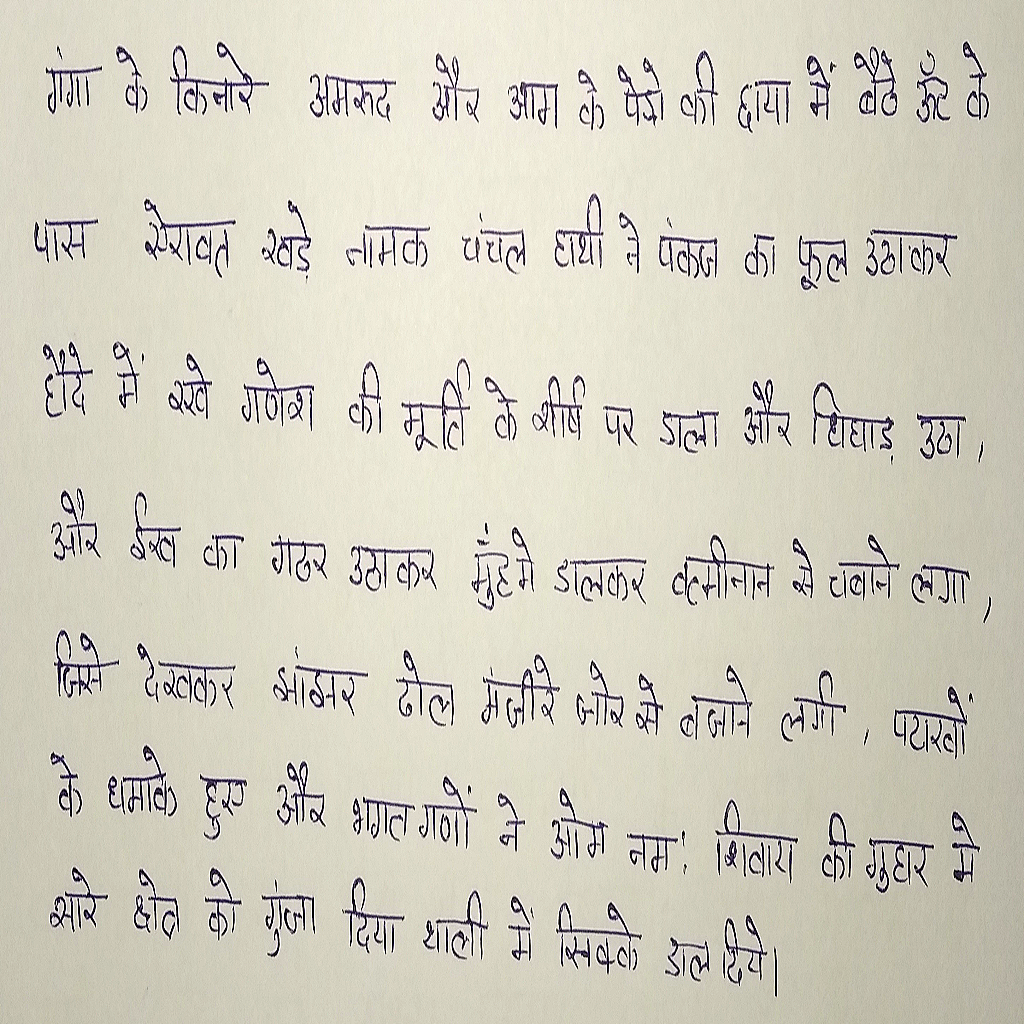 गंगा के किनारे अमरुद और आम के पेड़ो की छाया में बैठे ऊँट के
पास ऐरावत खड़े नामक चंचल हाथी ने पंकज का फूल उठाकर
हौदे में रखे गणेश की मूर्ति के शीर्ष पर डाला और चिंघाड़ उठा,
और ईख का गठर उठाकर मुँहमे डालकर इत्मीनान से चबाने लगा,
जिसे देखकर झांझर ढोल मंजीरे जोर से बजाने लगी, पटाखों
के धमाके हुए और भगत गणों ने ओम नमः शिवाय की गुहार मे
सारे क्षेत्र को गुंजा दिया थाली में सिक्के डाल दिये।